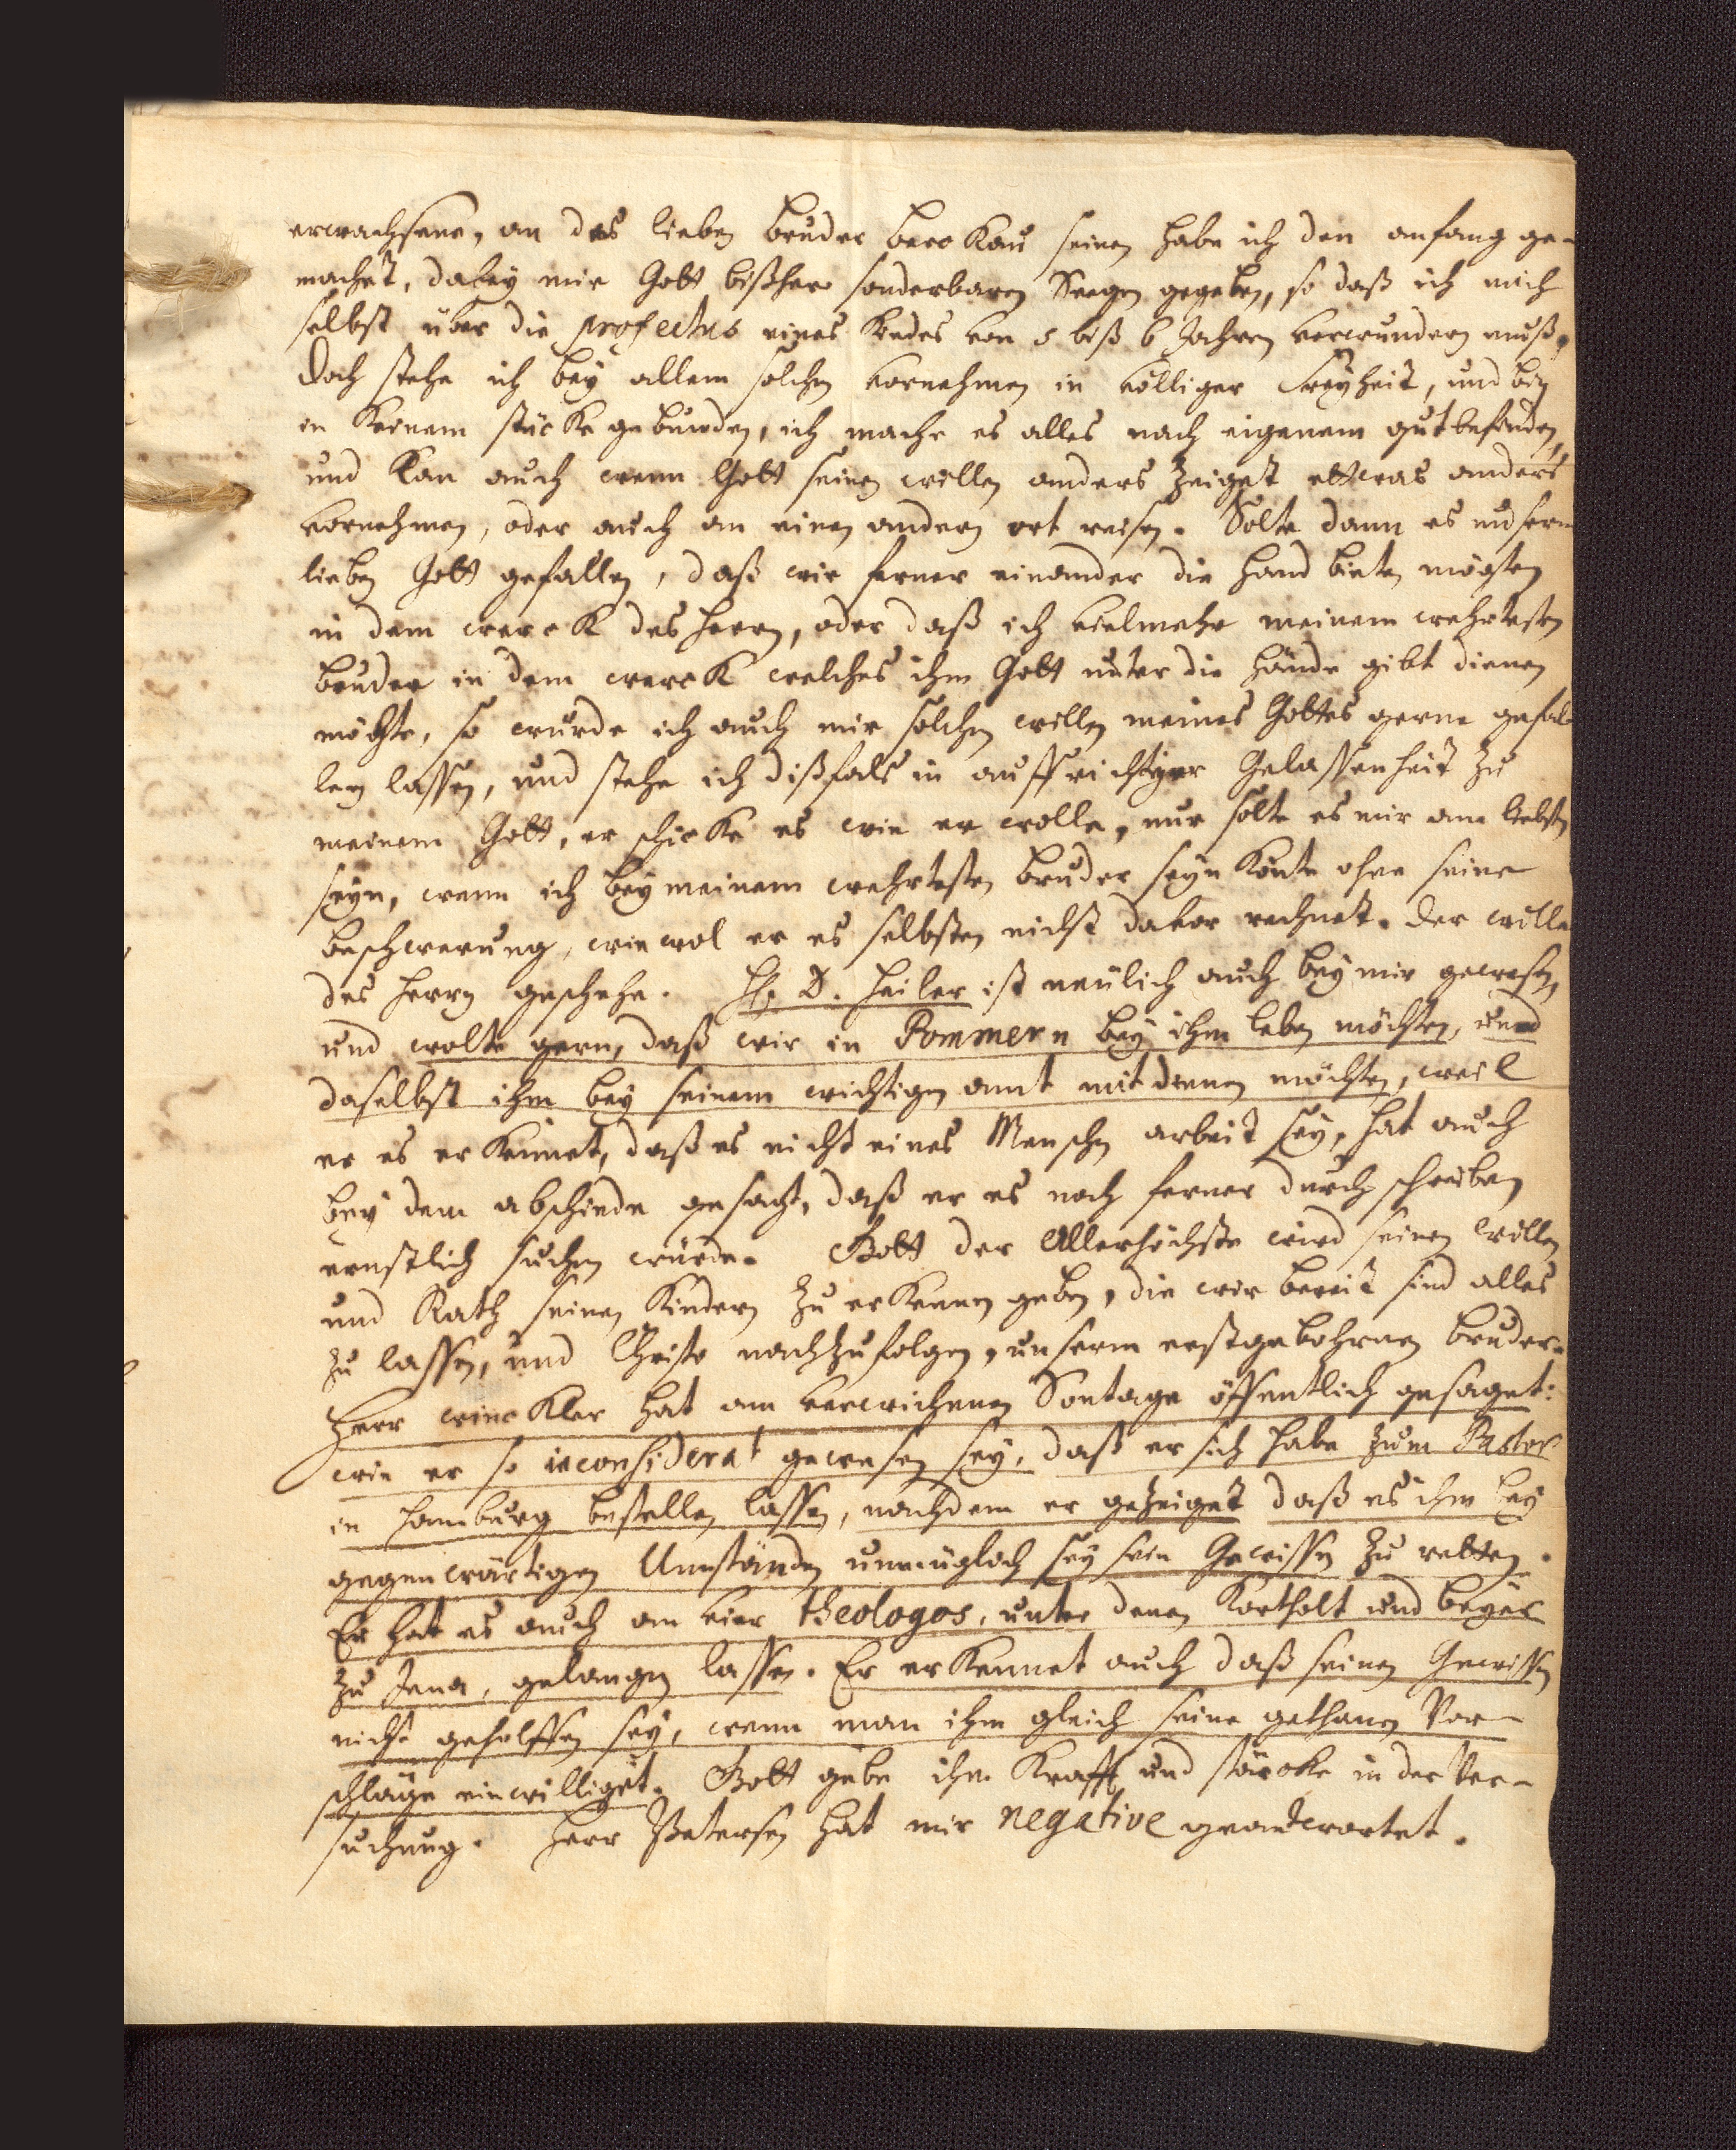 erwachsene, an des lieben Bruder Berckau seinen habe ich den anfang ge-
machet, dabey mir Gott bißher sonderbaren Seegen gegeben, so daß ich mich
selbst über die profectus eines Kindes von 5 biß 6 Jahren verwundern muß,
Doch stehe ich bey allem solchen vornehmen in völliger Freyheit, und bin
in keinem stücke gebunden, ich mache es alles nach eigenem gutbefinden,
und kan auch wenn Gott seinen willen anders zeiget ettwas anders
vornehmen, oder auch an einen andern ort reisen. Solte dann es unserm
lieben Gott gefallen, daß wir ferner einander die Hand bieten mögten
in dem werck des Herrn, oder daß ich vielmehr meinem wehrtesten
Bruder in dem werck welches ihm Gott unter die Hände gibt dienen
möchte, so würde ich auch mir solchen willen meines Gottes gerne gefal
len lassen, und stehe ich dißfals in auffrichtiger Gelassenheit zu
meinem Gott, er schicke es wie er wolle, nur solte es mir am liebsten
seyn, wenn ich bey meinem wehrtesten Bruder seyn könte ohne seine
beschwerung, wiewol er es selbsten nicht davor rechnet. Der wille
des Herrn geschehe. H. D. Heiler ist neulich auch bey mir gewesen,
und wolte gern, daß wir in Pommern bey ihm leben möchten, und
daselbst ihm bey seinem wichtigen amt mit dienen möchten, weil
er es erkennet, daß es nicht eines Menschen arbeit sey, hat auch
bey dem abschiede gesagt, daß er es noch ferner durch schreiben
ernstlich suchen würde. Gott der Allerhöchste wird seinen willen
und Rath seinen Kindern zu erkennen geben, die wir bereit sind alles
zu lassen, und Christo nachzufolgen, unserm erstgebohrnen Bruder.
Herr Winckler hat am verwichenen Sontage öffentlich gesaget:
wie er so inconsiderat gewesen sey, daß er sich habe zum Pastor
in Hamburg bestellen lassen, nachdem er gezeiget daß es ihm bey
gegenwärtigen Umständen unmüglich sey sein Gewissen zu retten.
Er hat es auch an vier Theologos, unter denen Kortholt und Beyer
zu Jena, gelangen lassen. Er erkennet auch daß seinen Gewissen
nicht geholffen sey, wenn man ihm gleich seine gethanen Vor-
schläge einwilliget. Gott gebe ihm Krafft und stärcke in der Ver-
suchung. Herr Petersen hat mir negative geantwortet.